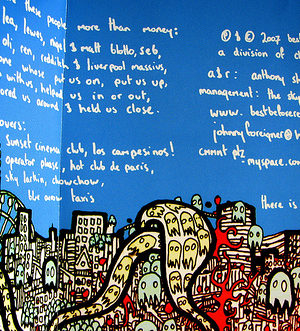 these people more than money:
lea, lewes, nigel & matt blotto, seb,
oli, ren, redditch & liverpool massive,
one whose put us on, put us up,
with us, helped us in or out,
ored us around & held us close.
overs:
sunset cinema club, los campesinos!
operator phase, hot club de paris,
sky larkin, chow chow,
blue arrow taxis
℗ & © 2007 best
a division of
a&r: anthony sh
management: the sim
www. bestbefore
johnnyforeigner@
commt plz
-myspace.com
there is